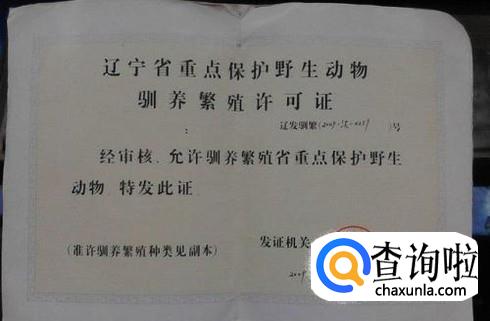 辽宁省重点保护野生动物
驯养繁殖许可证
:
辽发驯繁(2009-)号
经审核、允许驯养繁殖省重点保护野生
动物、特发此证
发证机关
(准许驯养繁殖种类见副本)
2009
查询啦
chaxunla.com